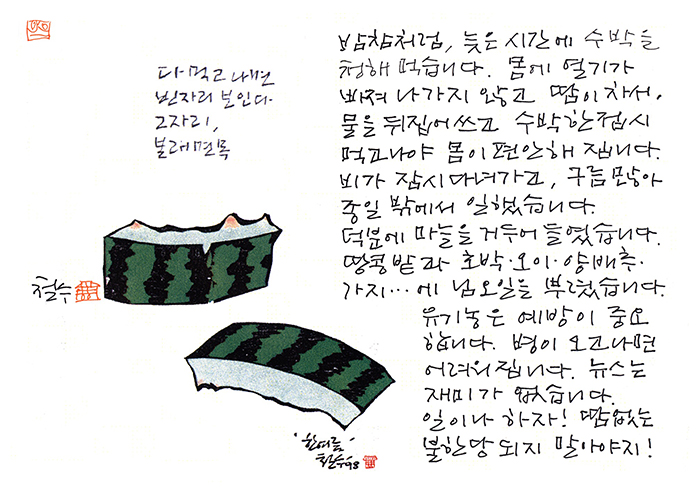 다 먹고 나면
빈자리 보인다
그자리,
볼래면목
철수
'한여름'
철수 98
밤참처럼, 늦은 시간에 수박을
청해 먹습니다. 몸에 열기가
빠져 나가지 않고 땀이 차서,
물을 뒤집어쓰고 수박 한 접시
먹고나야 몸이 편안해 집니다.
비가 잠시 다녀가고, 구름 많아
종일 밖에서 일했습니다.
덕분에 마늘을 거두어 들였습니다.
땅콩 밭과 호박·오이·양배추·
가지… 에 님오일을 뿌렸습니다.
유기농은 예방이 중요
합니다. 병이 오고나면
어려워집니다. 뉴스는
재미가 없습니다.
일이나 하자! 땀없는
불한당 되지 말아야지!